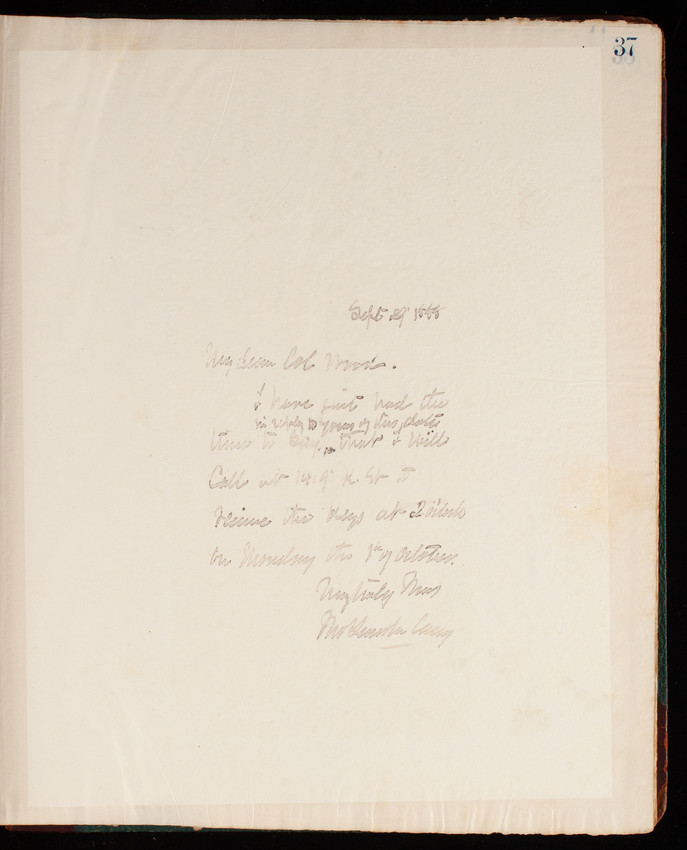 37
Sept 29 1888
My dear Col Wood.
I have just had the
in reply to yours of this date
time to say, that I will
Call at 1419 K. St to
receive the keys at 2 o'clock
on Monday the 1st of October.
Very truly Yours
Thos Lincoln Casey